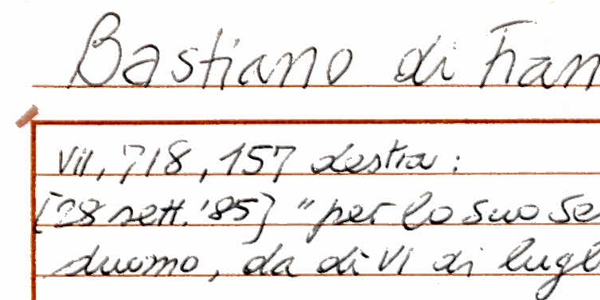 Bastiano di Fran
VII, 718, 157 destra:
[28 sett. '85] "per lo suo se
duomo, da dì VI di lugl